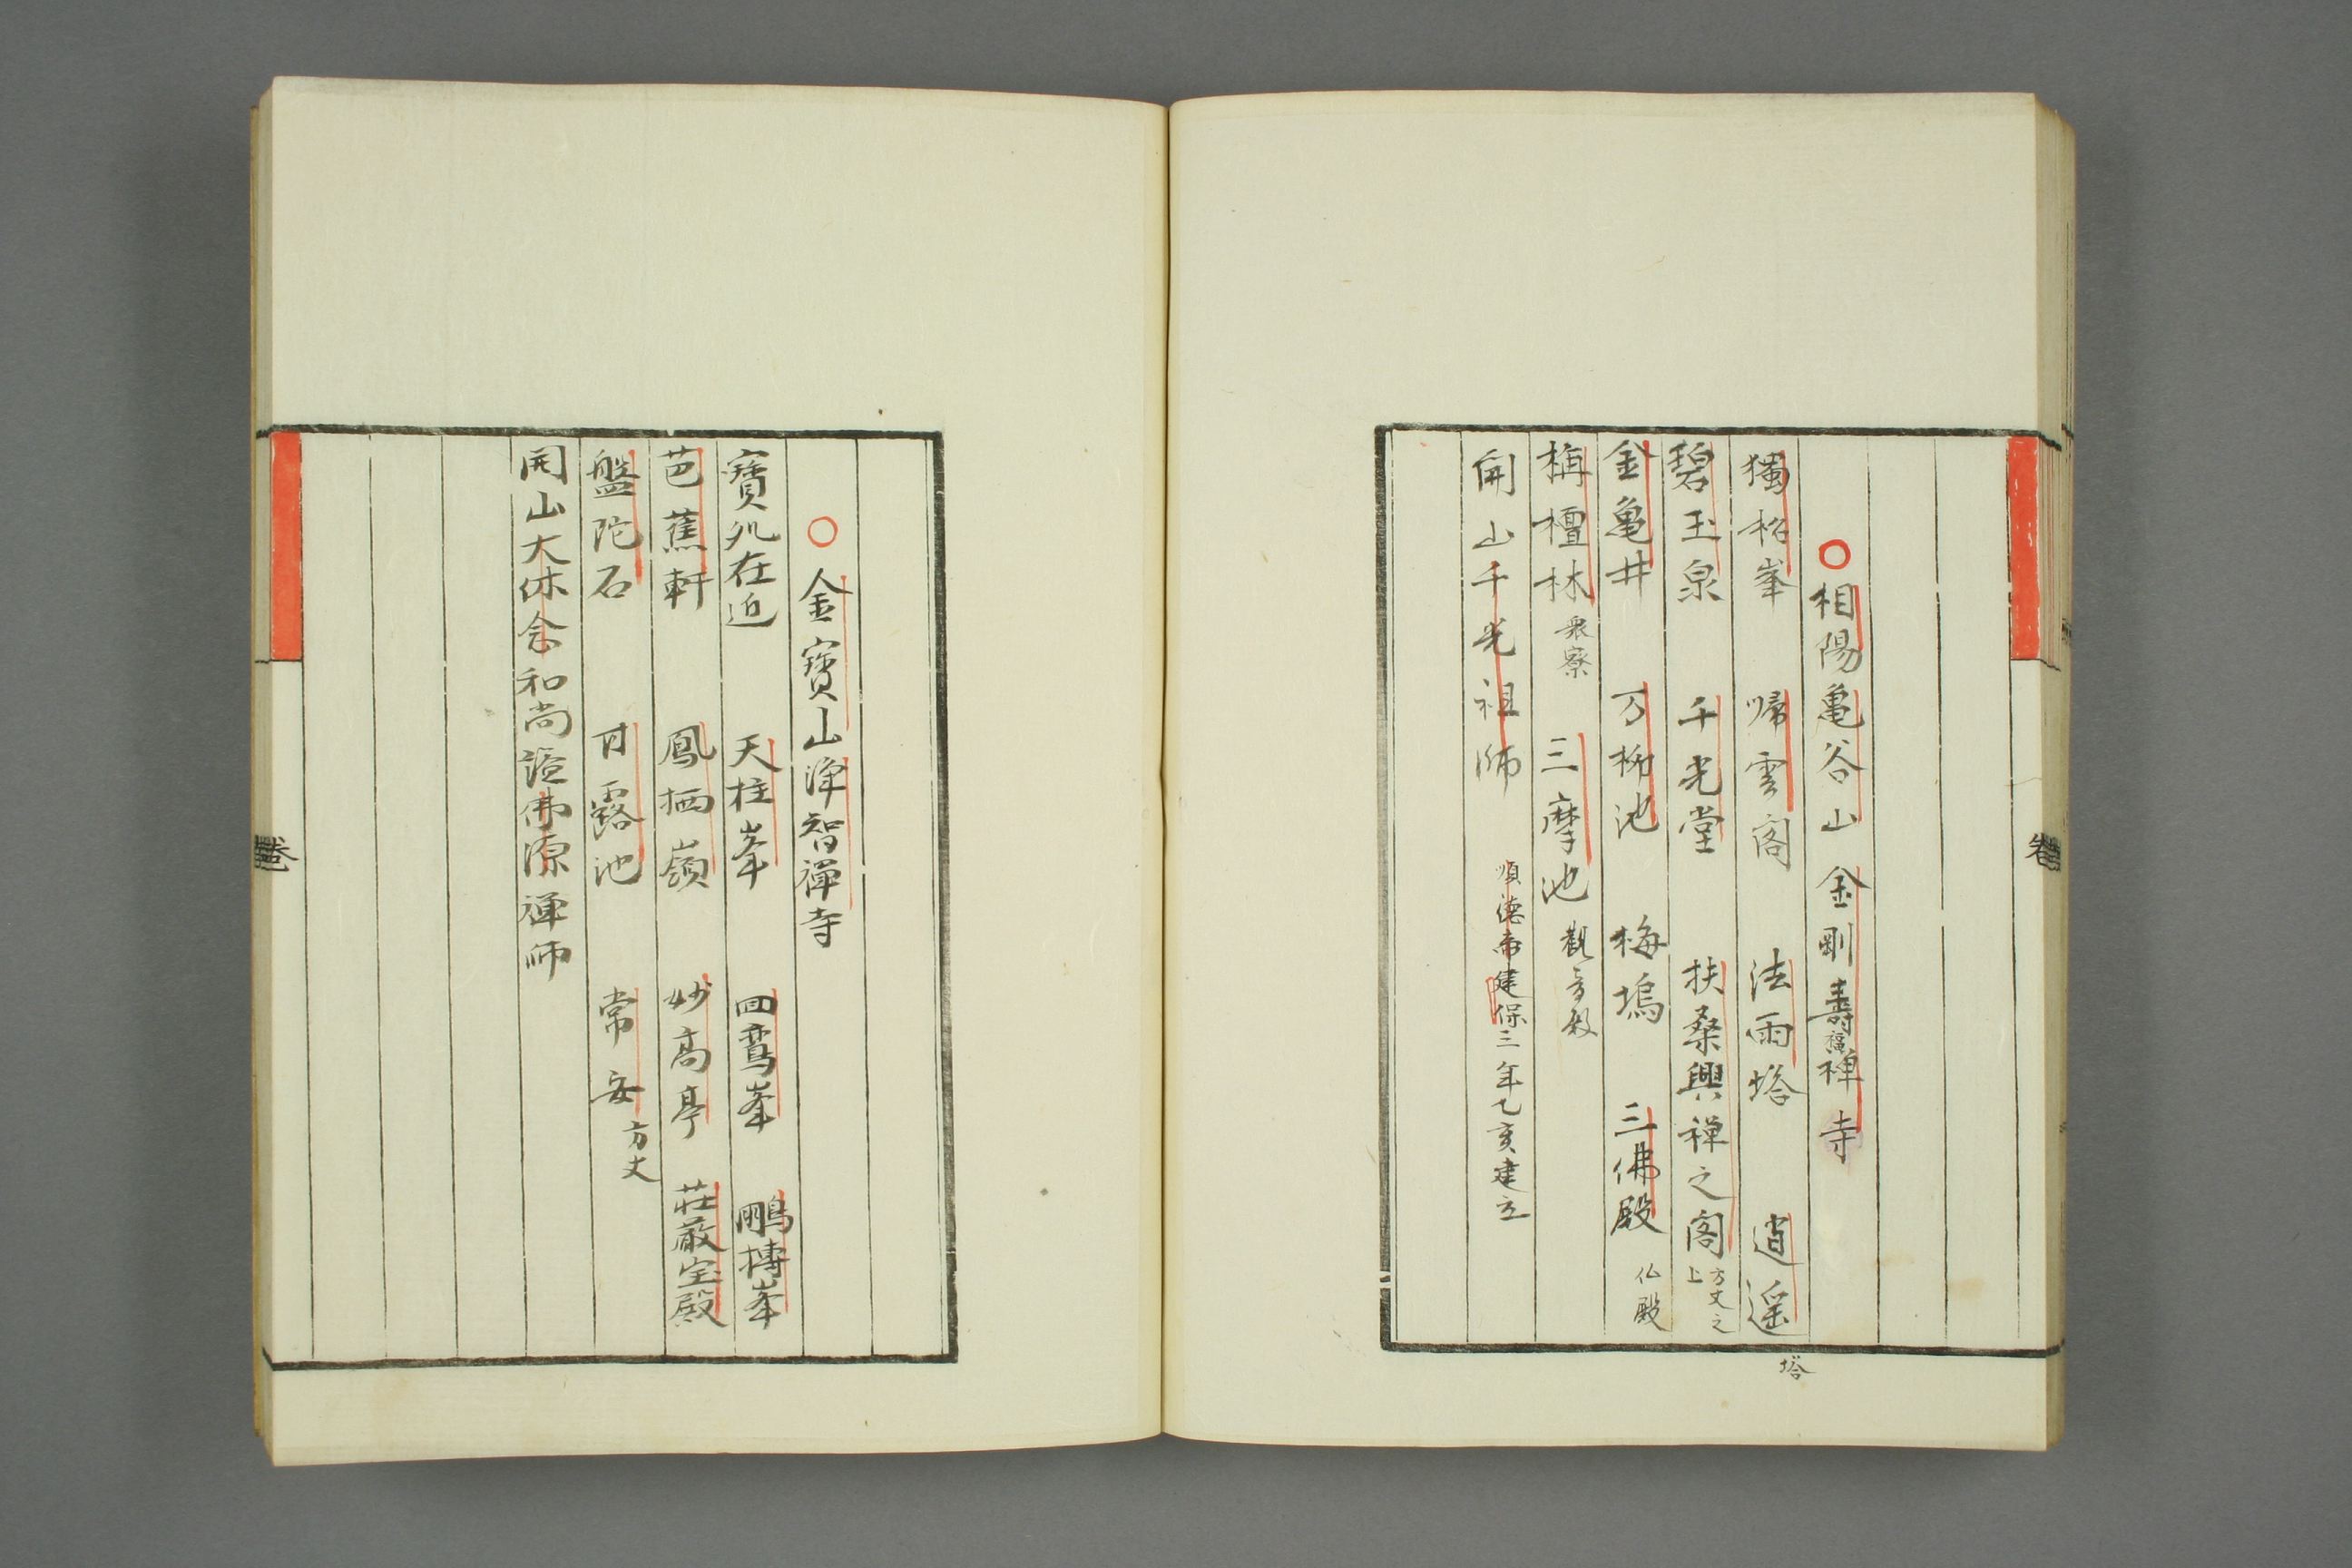 相陽亀谷山金剛壽福禅寺
獨松峯 帰雲閣 法雨塔 逍遥
塔
碧玉泉 千光堂 扶桑興禅之閣 方丈之上
金亀井 万柳池 梅塢 三佛殿 仏殿
栴檀林 衆寮 三摩池 観音殿
開山千光祖師 順徳帝建保三年乙亥建立
卷
金寶山浄智禅寺
寶所在近 天柱峯 回鸞峯 鵬摶峯
芭蕉軒 鳳栖嶺 妙高亭 荘厳宝殿
盤陀石 甘露池 常安 方丈
開山大休念和尚諡佛源禅師
卷